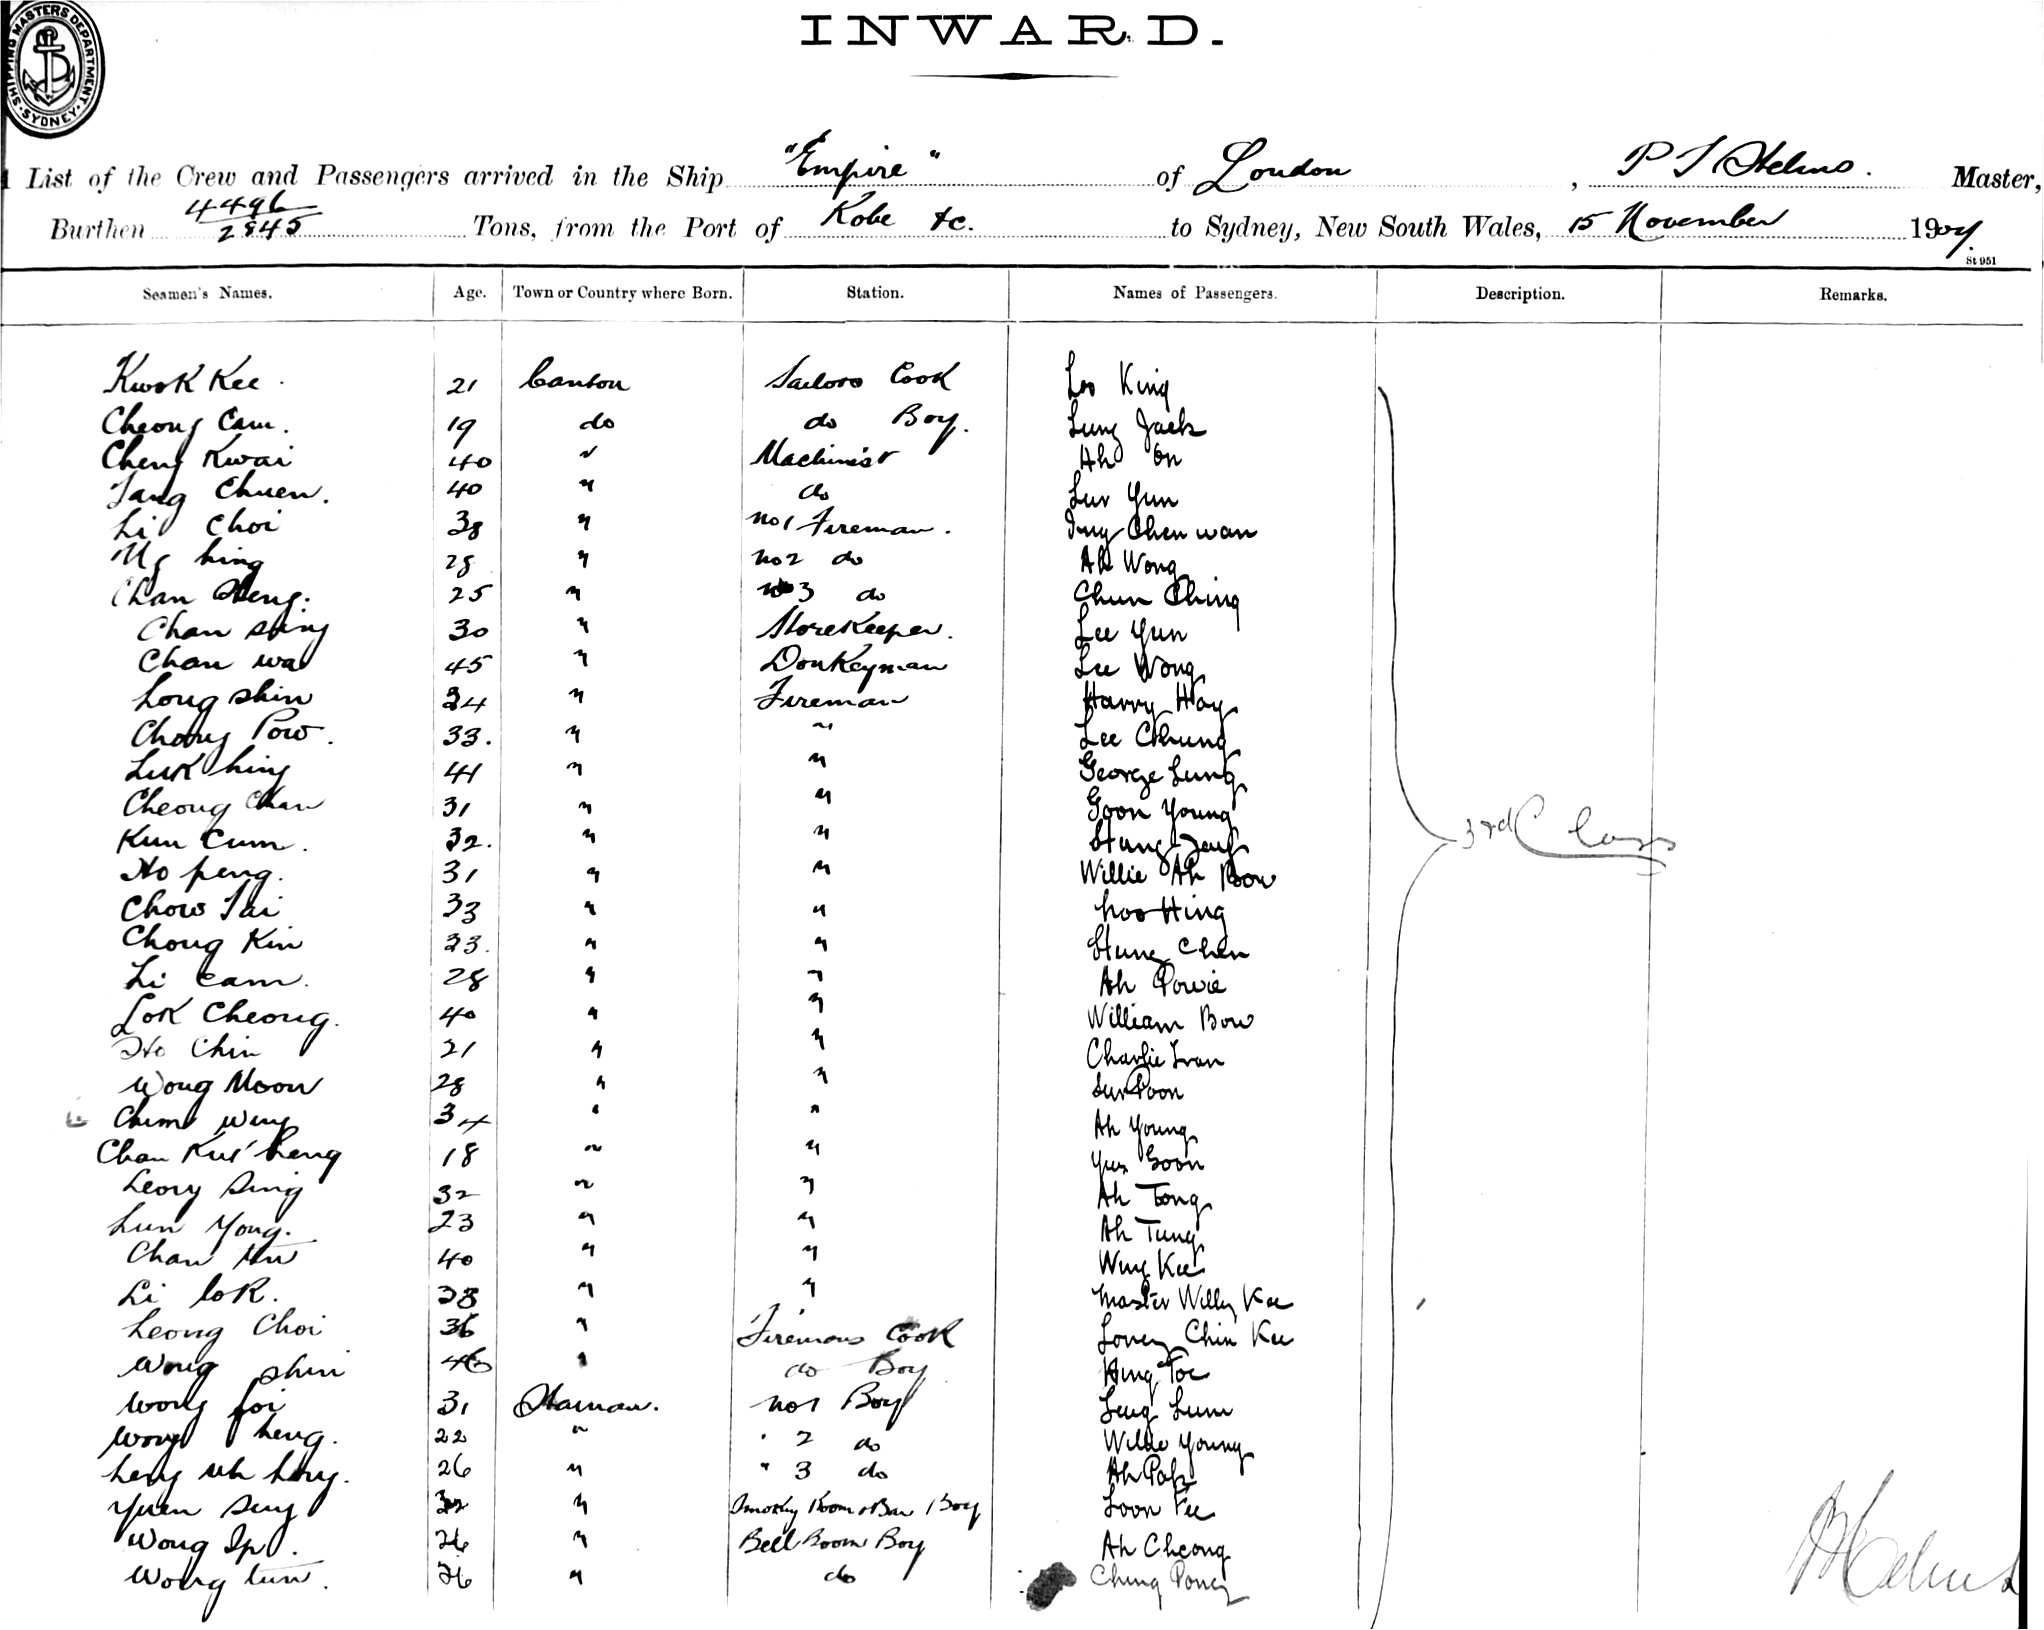 SHIPPING MASTERS DEPARTMENT · SYDNEY ·
INWARD.
List of the Crew and Passengers arrived in the Ship "Empire" of London, P T Helms. Master,
Burthen 4496/2845 Tons, from the Port of Kobe &c. to Sydney, New South Wales, 15 November 1904.
St 951
Seamen's Names. Age. Town or Country where Born. Station. Names of Passengers. Description. Remarks.
Kwok Kee. 21 Canton Sailors Cook Loo King
Cheong Cam. 19 do do Boy. Lung Jack
Cheng Kwai 40 " Machinist Ah On
Tang Chuen. 40 " do Luv Yun
Li Choi 38 " no 1 Fireman. Chen wan
Ng hing 28 " no 2 do Ah Wong
Chan Heng. 25 " no 3 do Chun Ching
Chan sing 30 " Storekeeper. Lee Yun
Chan wa 45 " Donkeyman Lee Wong
Long shin 34 " Fireman Harry Hoy
Chong Pow. 33. " " Lee Chung
Luk hing 41 " " George Lung
Cheong Chan 31 " " Goon Young
Kun Cum. 32. " "
Ho peng. 31 " " Willie Ah Bow
Chow Tai 33 " " hoo Hing
Chong Kin 33. " " Chen
Li Cam. 28 " " Ah Powie
Lok Cheong. 40 " " William Bow
Ho Chin 21 " " Charlie Ivan
Wong Moon 28 " " Sun Poon
Chum Wing 34 " " Ah Young
Chan Kui heng 18 " " Yun Goon
Leong Sing 32 " " Ah Tong
Lun Yong. 23 " " Ah Tung
Chan 40 " " Wing Kee
Li lok. 38 " " Master Willy Kee
Leong Choi 36 " Firemans Cook Loney Chin Kee
Wong shin " do Boy Hing Toe
Wong foi 31 Hainan. no 1 Boy Leng Lum
Wong heng. 22 " " 2 do Willie Young
heng 26 " " 3 do Ah Pak
Yuen Sing 32 " Smoking Room & Bar Boy Loon Fee
Wong Ip. 26 " Bell Boom Boy Ah Cheong
Wong tun. 26 " do Ching Poney
3rd Class
P T Helms